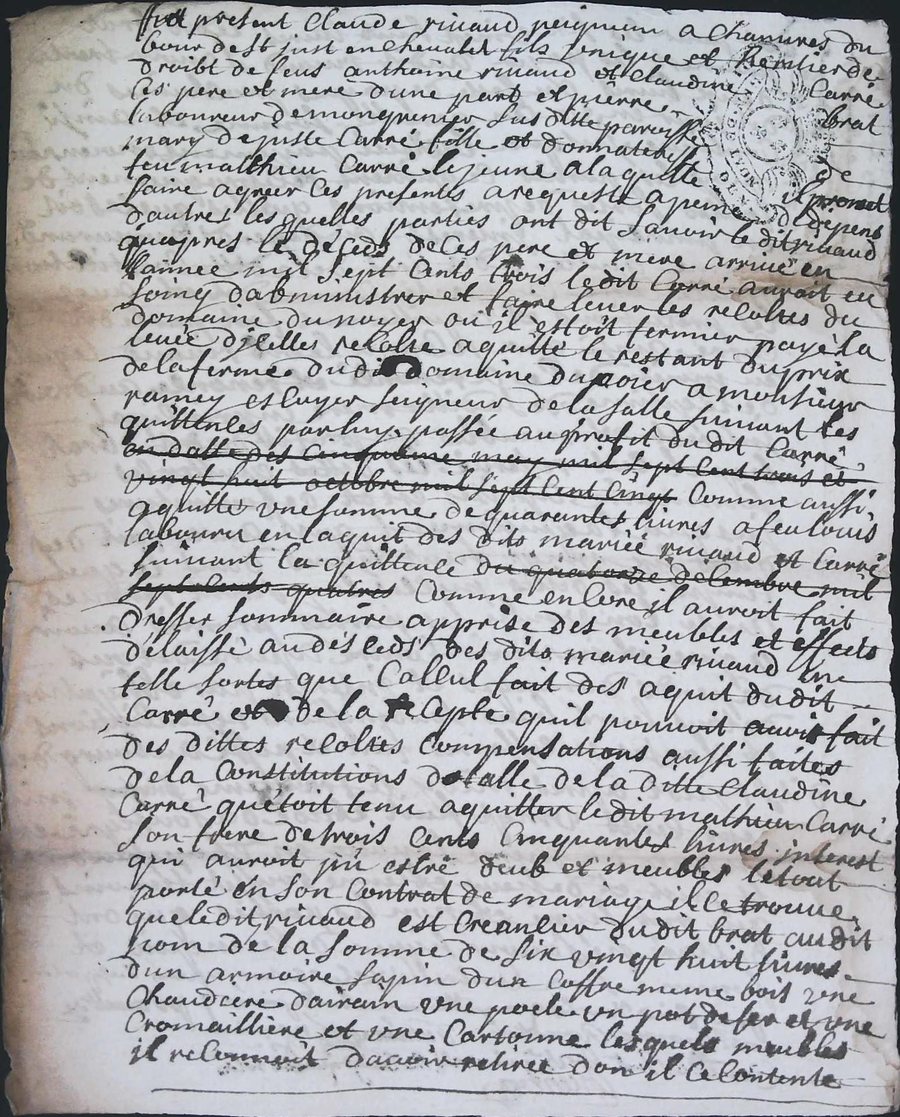 fut present Claude rivaud peigneur a chanvres du
bour de st just en chevalet fils unique et heritier de
droibt de feus anthoine rivaud et Claudine Carré
Ces pere et mere dune part et pierre brat
laboureur de mongrenier sus ditte paroisse
mary de juste Carré fille et donnateresse de
feu matthieu Carré le jeune a laquelle il promet
faire agreer Ces presentes a requeste a peine Depens
dautre lesquelles parties ont dit savoir le dit rivaud
quapres le décéds de Ces pere et mere arrivé en
lannee mil sept Cents trois le dit Carré auroit eu
soing dabministrer et faire lever les recoltes du
domaine du noyer ou il estoit fermier payé la
levée dicelles recolte aquitté le restant du prix
de la ferme du dit domaine du noier a monsieur
ramey escuyer seigneur de la salle suivant les
quittences par luy passée au profit du dit Carré
en datte des Cinquieme may mil sept Cent trois et
vingt huit octobre mil sept Cent Cinqt Comme aussi
aquitté une somme de quarantes livres a feu louis
laboure en laquit des dits mariée rivaud et Carré
suivant la quittence du quatorze décembre mil
sept Cents quatres Comme encore il auroit fait
dresser sommaire apprise des meubles et effects
délaissé au déseds des dits mariée rivaud une
telle sortes que Callul fait des aquit du dit
Carré et de la recepte quil pouvoit avoir fait
des dittes recoltes Compensations aussi faites
de la Constitutions dotalle de la ditte Claudine
Carré quétoit tenu aquitter le dit mathieu Carré
son frere de trois Cents Cinquantes livres interest
qui auroit pu estre deub et meubles le tout
porté en son Contrat de mariage il Ce trouve
que le dit rivaud est Creancier du dit brat au dit
nom de la somme de six vingt huit livres
dun armoire sapin dun Coffre meme bois une
Chaudcere dairain une poele un pot de fer et une
Cromailliere et une Cartonne lesquels meubles
il reconnoit davoir retiree don il Ce Contente